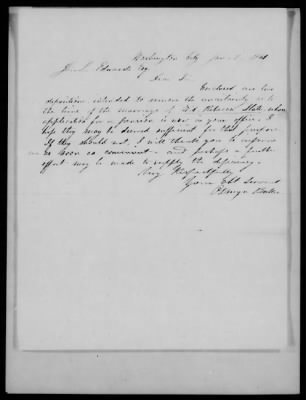 Washington City
J. L. Edwards Esq
Dear Sir
Enclosed are two
depositions intended to remove the uncertainty as to
the time of the marriage of Rebecca whose
application for a pension is now in your office. I
hope they may be deemed sufficient for that purpose
If they should not, I will thank you to inform
me as soon as convenient and perhaps a further
effort may be made to supply the deficiency.
Very Respectfully
Your Obt Servant